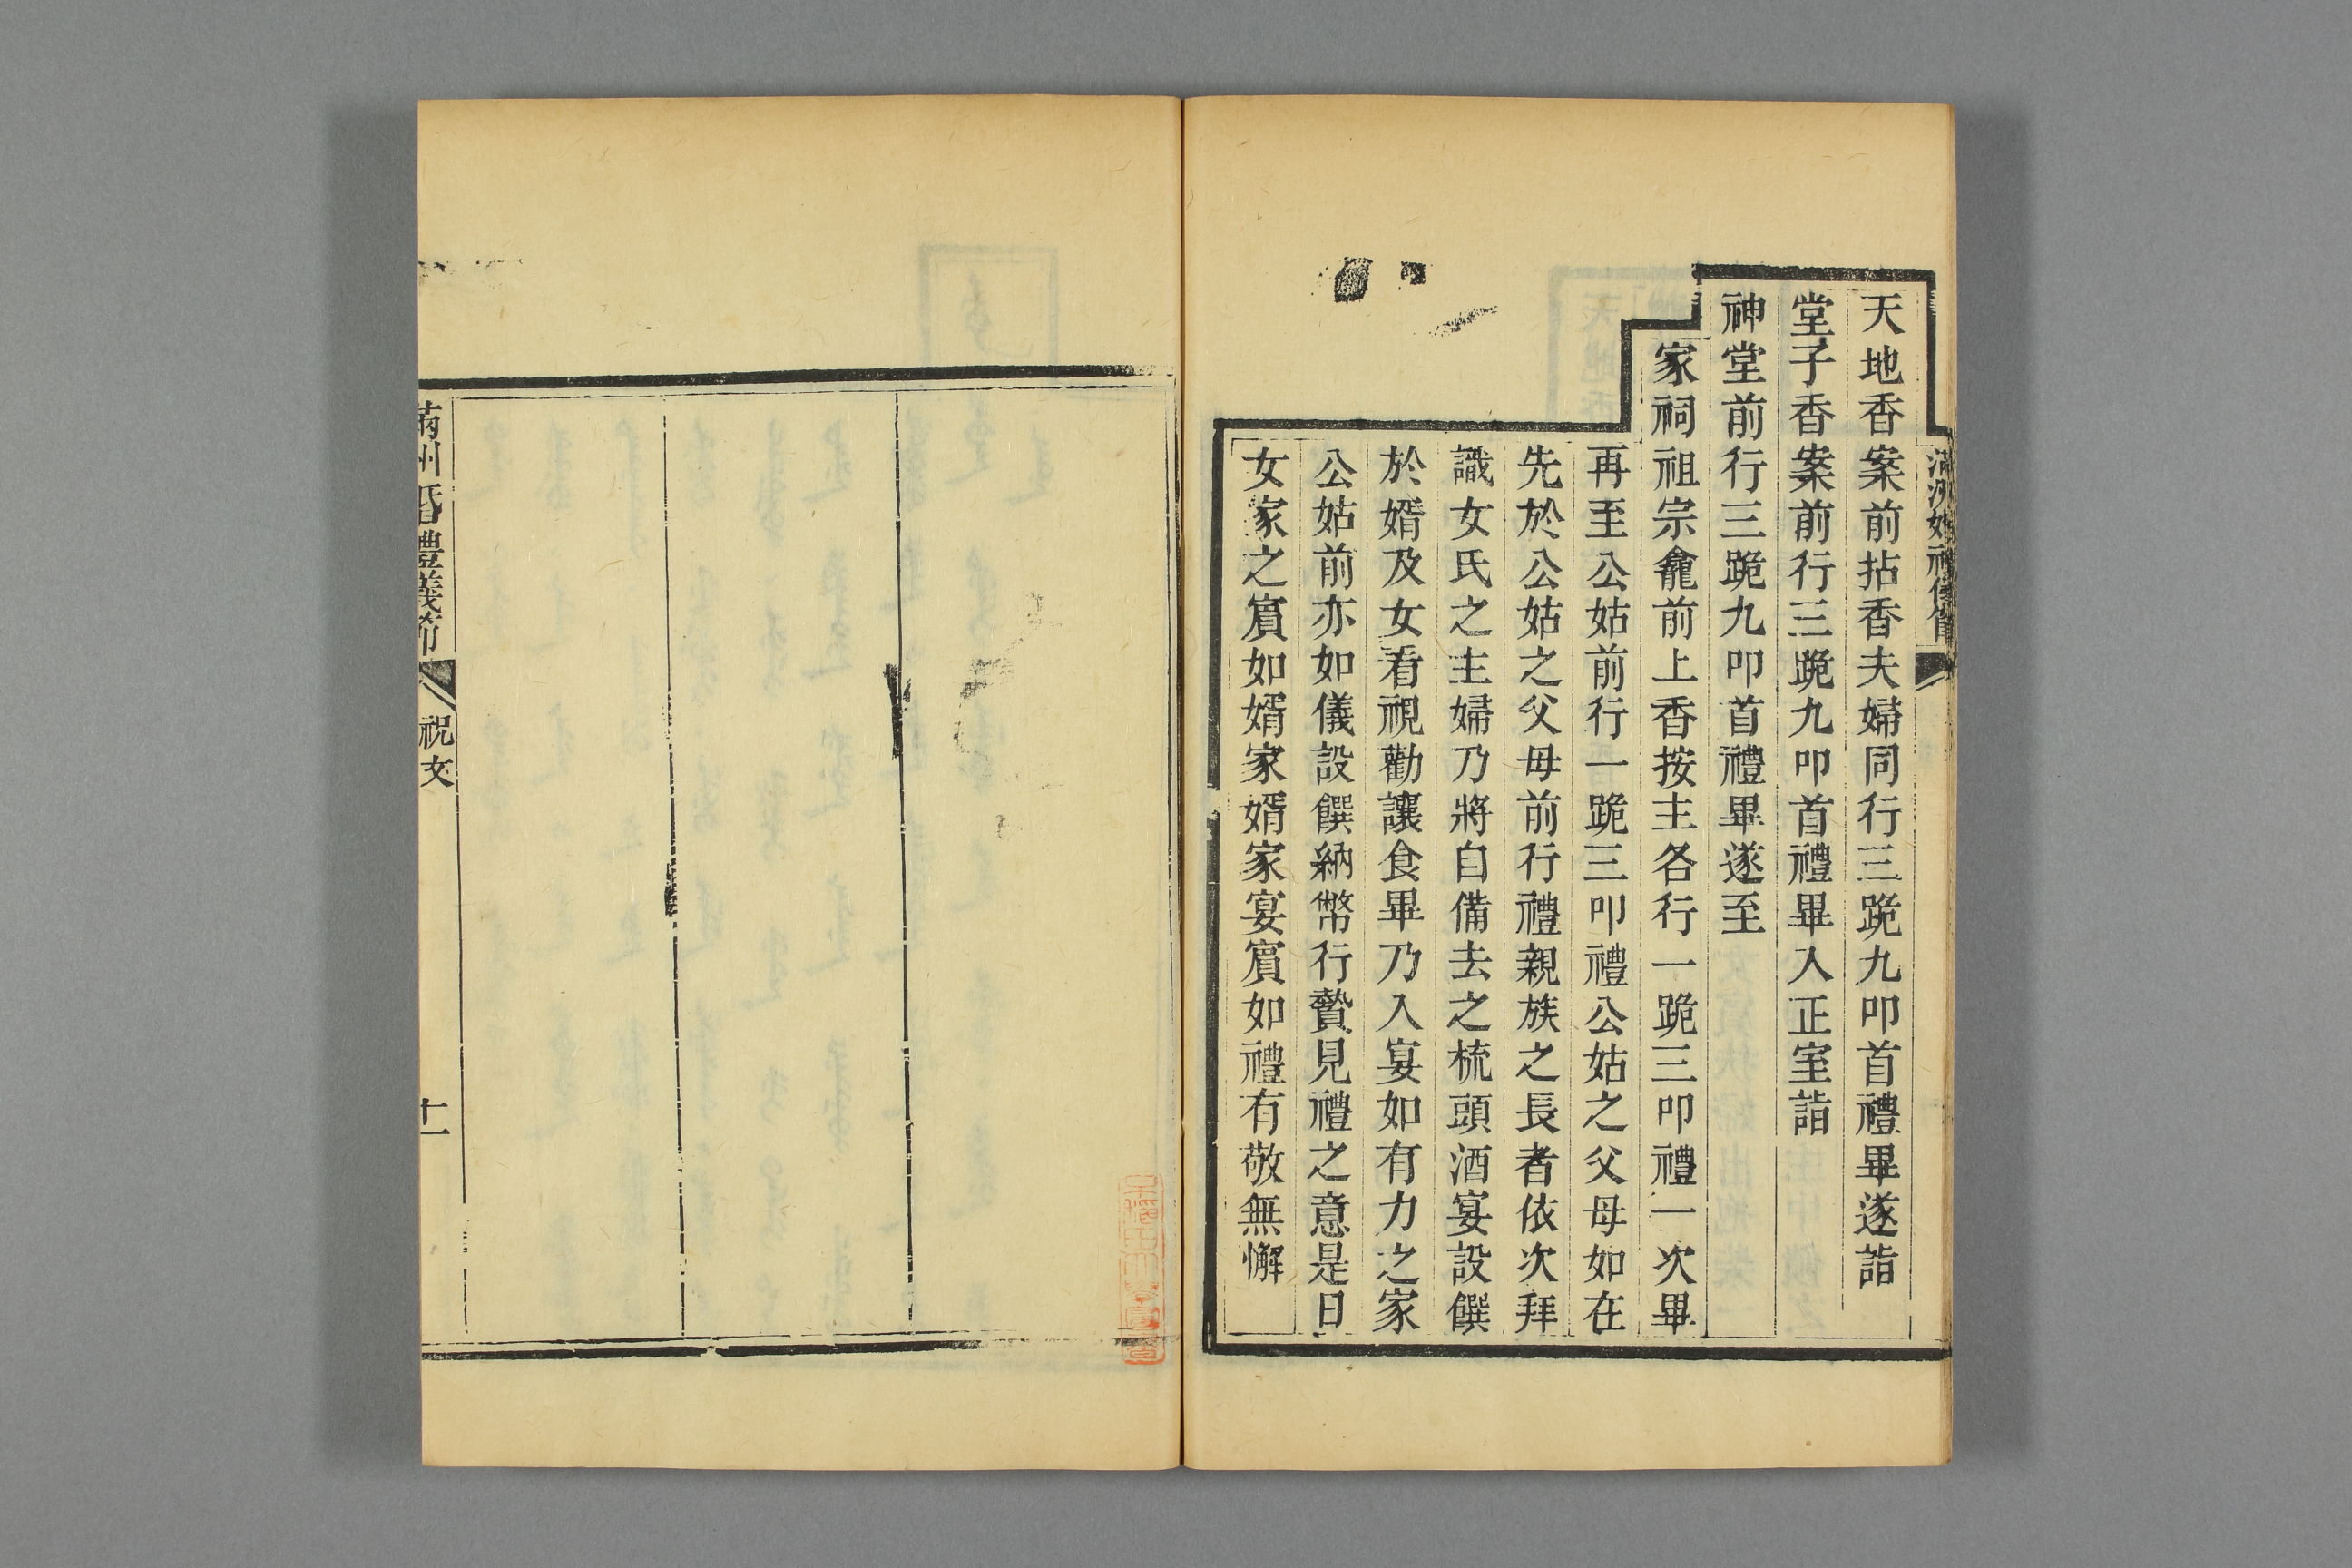 天地香案前拈香夫婦同行三跪九叩首禮畢遂詣
堂子香案前行三跪九叩首禮畢入正室詣
神堂前行三跪九叩首禮畢遂至
家祠祖宗龕前上香按主各行一跪三叩禮一次畢
再至公姑前行一跪三叩禮公姑之父母如在
先於公姑之父母前行禮親族之長者依次拜
識女氏之主婦乃將自備去之梳頭酒宴設饌
於婿及女看視勸讓食畢乃入宴如有力之家
公姑前亦如儀設饌納幣行贄見禮之意是日
女家之賓如婿家婿家宴賓如禮有敬無懈
滿洲婚禮儀節
祝文
十一